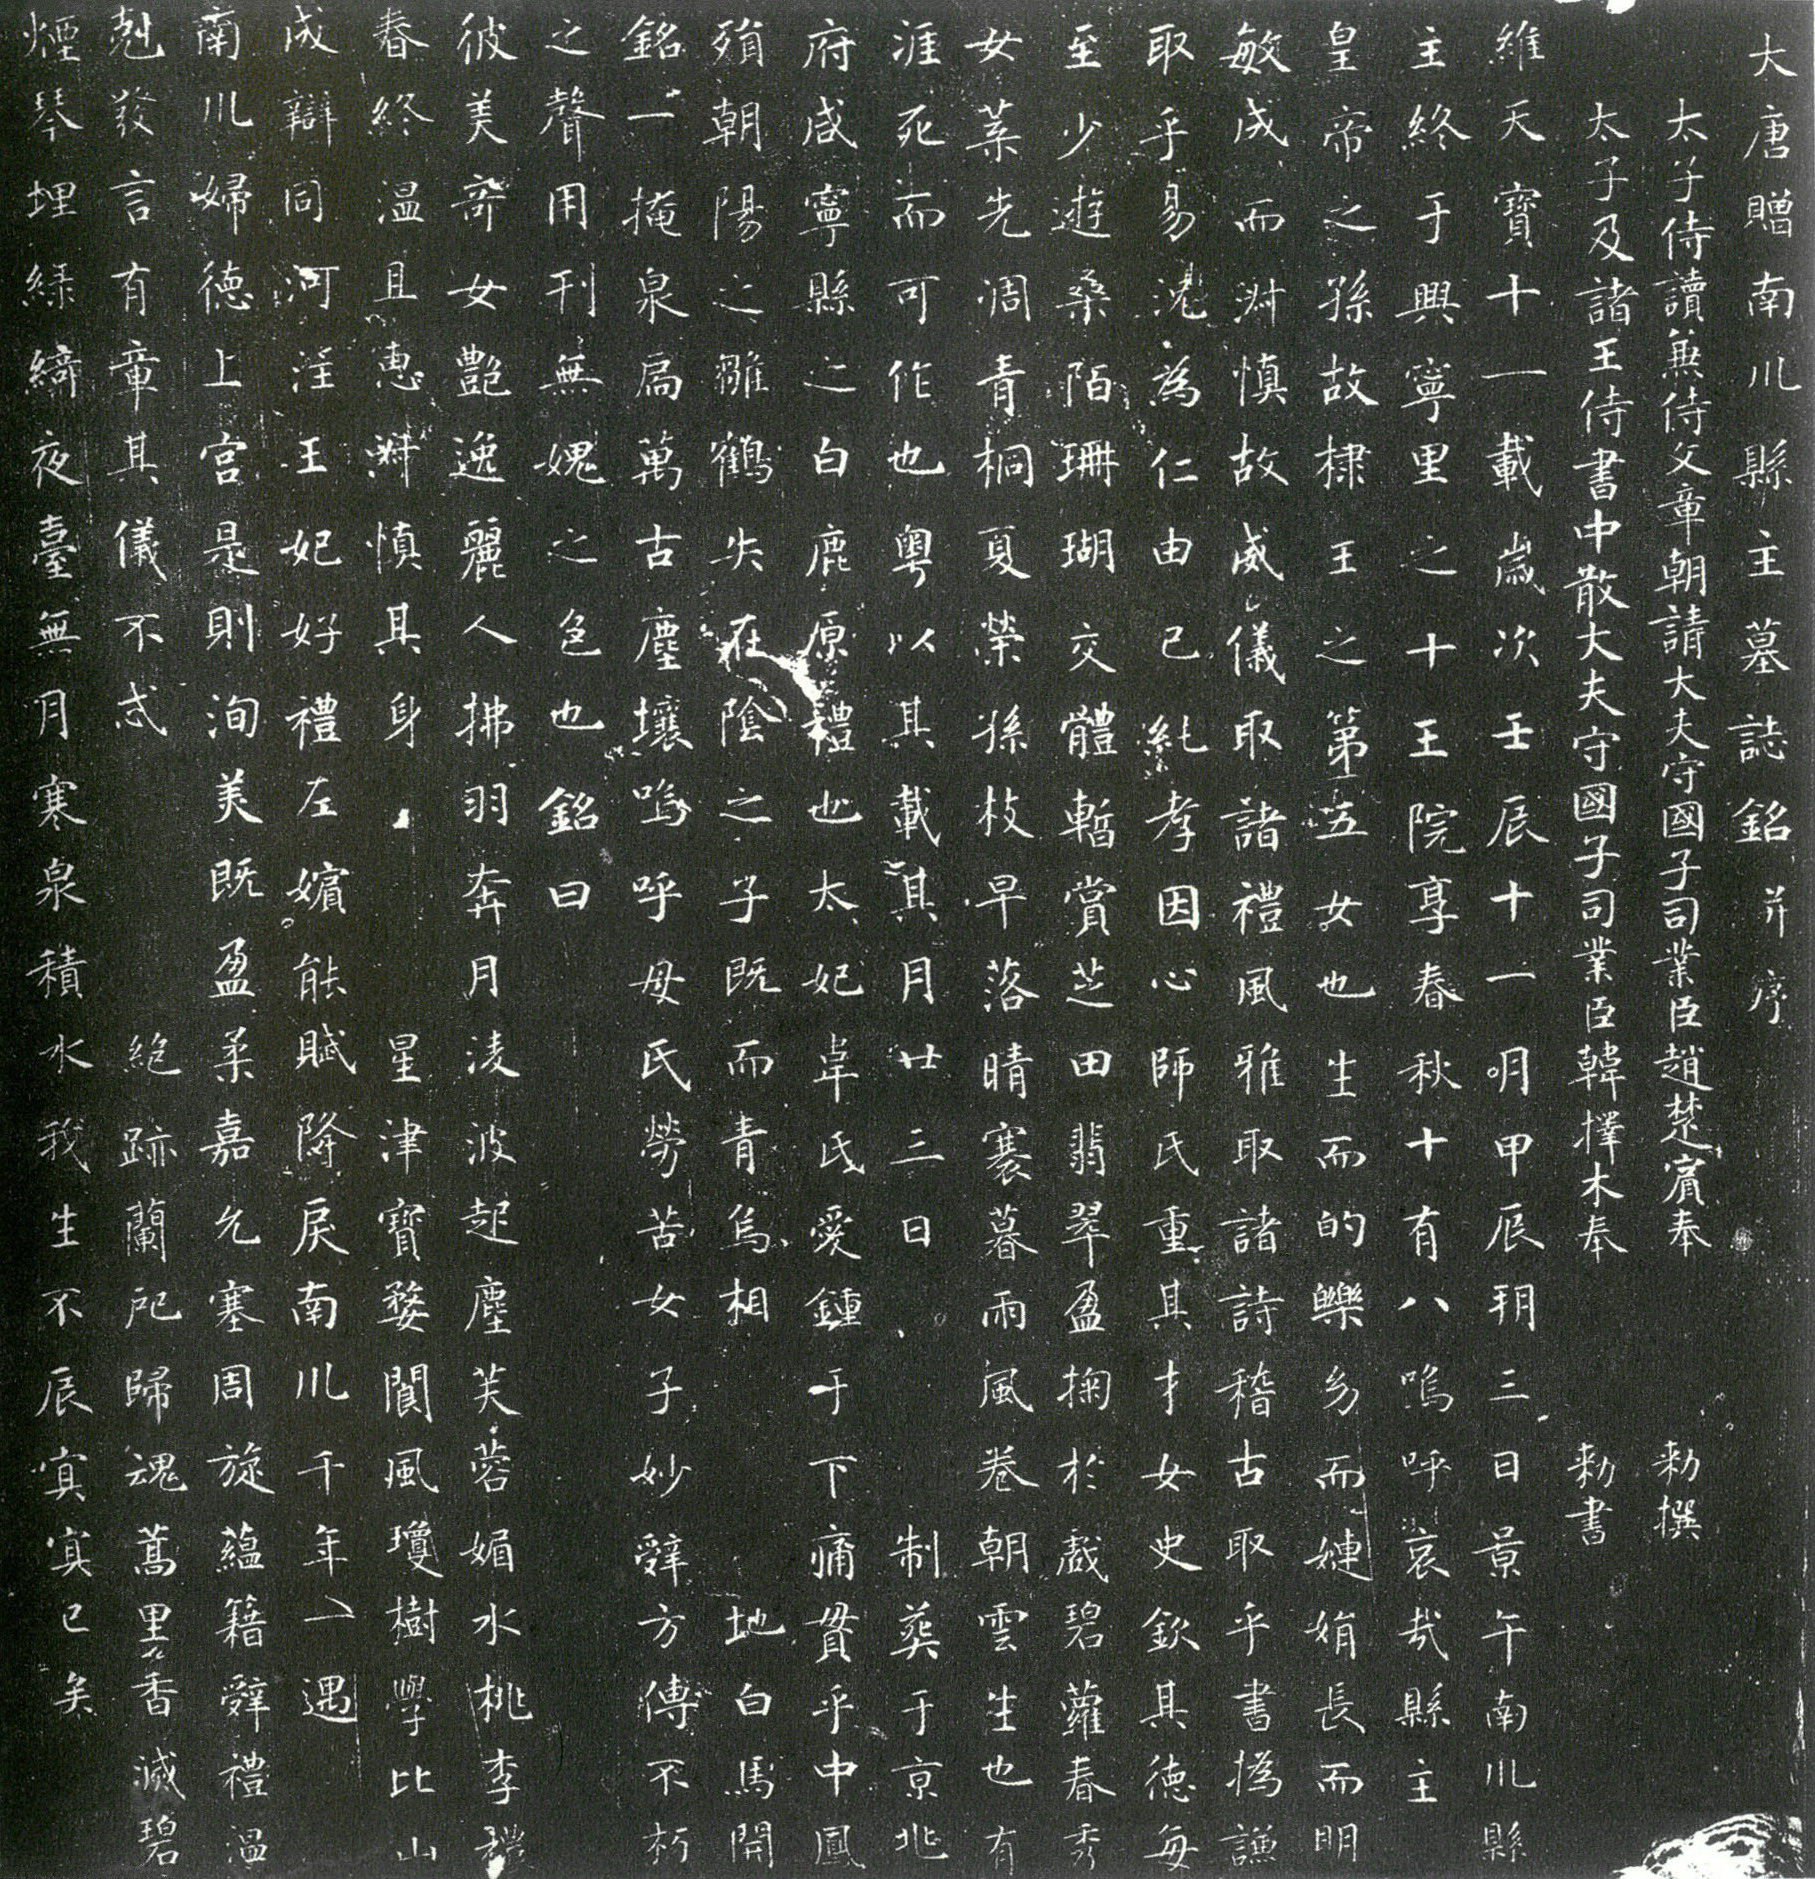 大唐贈南川縣主墓誌銘并序
太子侍讀兼侍文章朝請大夫守國子司業臣趙楚賓奉 勅撰
太子及諸王侍書中散大夫守國子司業臣韓擇木奉 勅書
維天寶十一載歲次壬辰十一月甲辰朔三日景午南川縣
主終于興寧里之十王院享春秋十有八嗚呼哀哉縣主
皇帝之孫故棣王之第五女也生而的皪幼而婕娟長而明
敏成而淋慎故威儀取諸禮風雅取諸詩稽古取乎書撝謙
取乎易洮為仁由己純孝因心師氏重其才女史欽其德每
至少遊桑陌珊瑚交體暫賞芝田翡翠盈掬於戲碧蘿春秀
女葉先凋青桐夏榮孫枝早落晴褰暮雨風卷朝雲生也有
涯死而可作也粵以其載其月廿三日 制葬于京兆
府咸寧縣之白鹿原禮也太妃韋氏愛鍾于下痛貫乎中鳳
殞朝陽之雛鶴失在陰之子既而青烏相 地白馬開
銘一掩泉扃萬古塵壤嗚呼母氏勞苦女子妙辤方傳不朽
之聲用刊無媿之色也銘曰
彼美奇女艷逸麗人拂羽奔月淩波起塵芙蓉媚水桃李穠
春終溫且惠淋慎其身 星津寶婺閬風瓊樹學比山
成辯同河注王妃好禮左嬪能賦降戾南川千年一遇
南川婦德上宮是則洵美既盈柔嘉允塞周旋蘊籍辤禮溫
剋發言有章其儀不忒 絕跡蘭戺歸魂蒿里香滅碧
煙琴埋綠綺夜臺無月寒泉積水我生不辰寘寘已矣